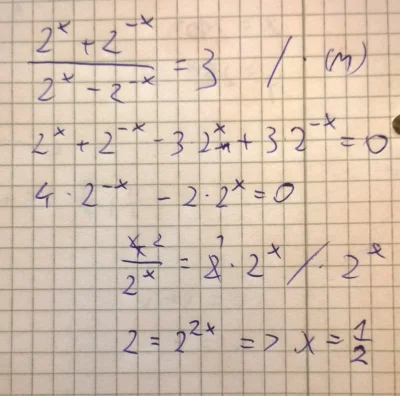 (2^x + 2^-x) / (2^x - 2^-x) = 3 / · (m)
2^x + 2^-x - 3 2^x + 3 2^-x = 0
4 · 2^-x - 2 · 2^x = 0
4̸ ² / 2^x = 2̸ ¹ · 2^x / · 2^x
2 = 2^2x => x = 1/2